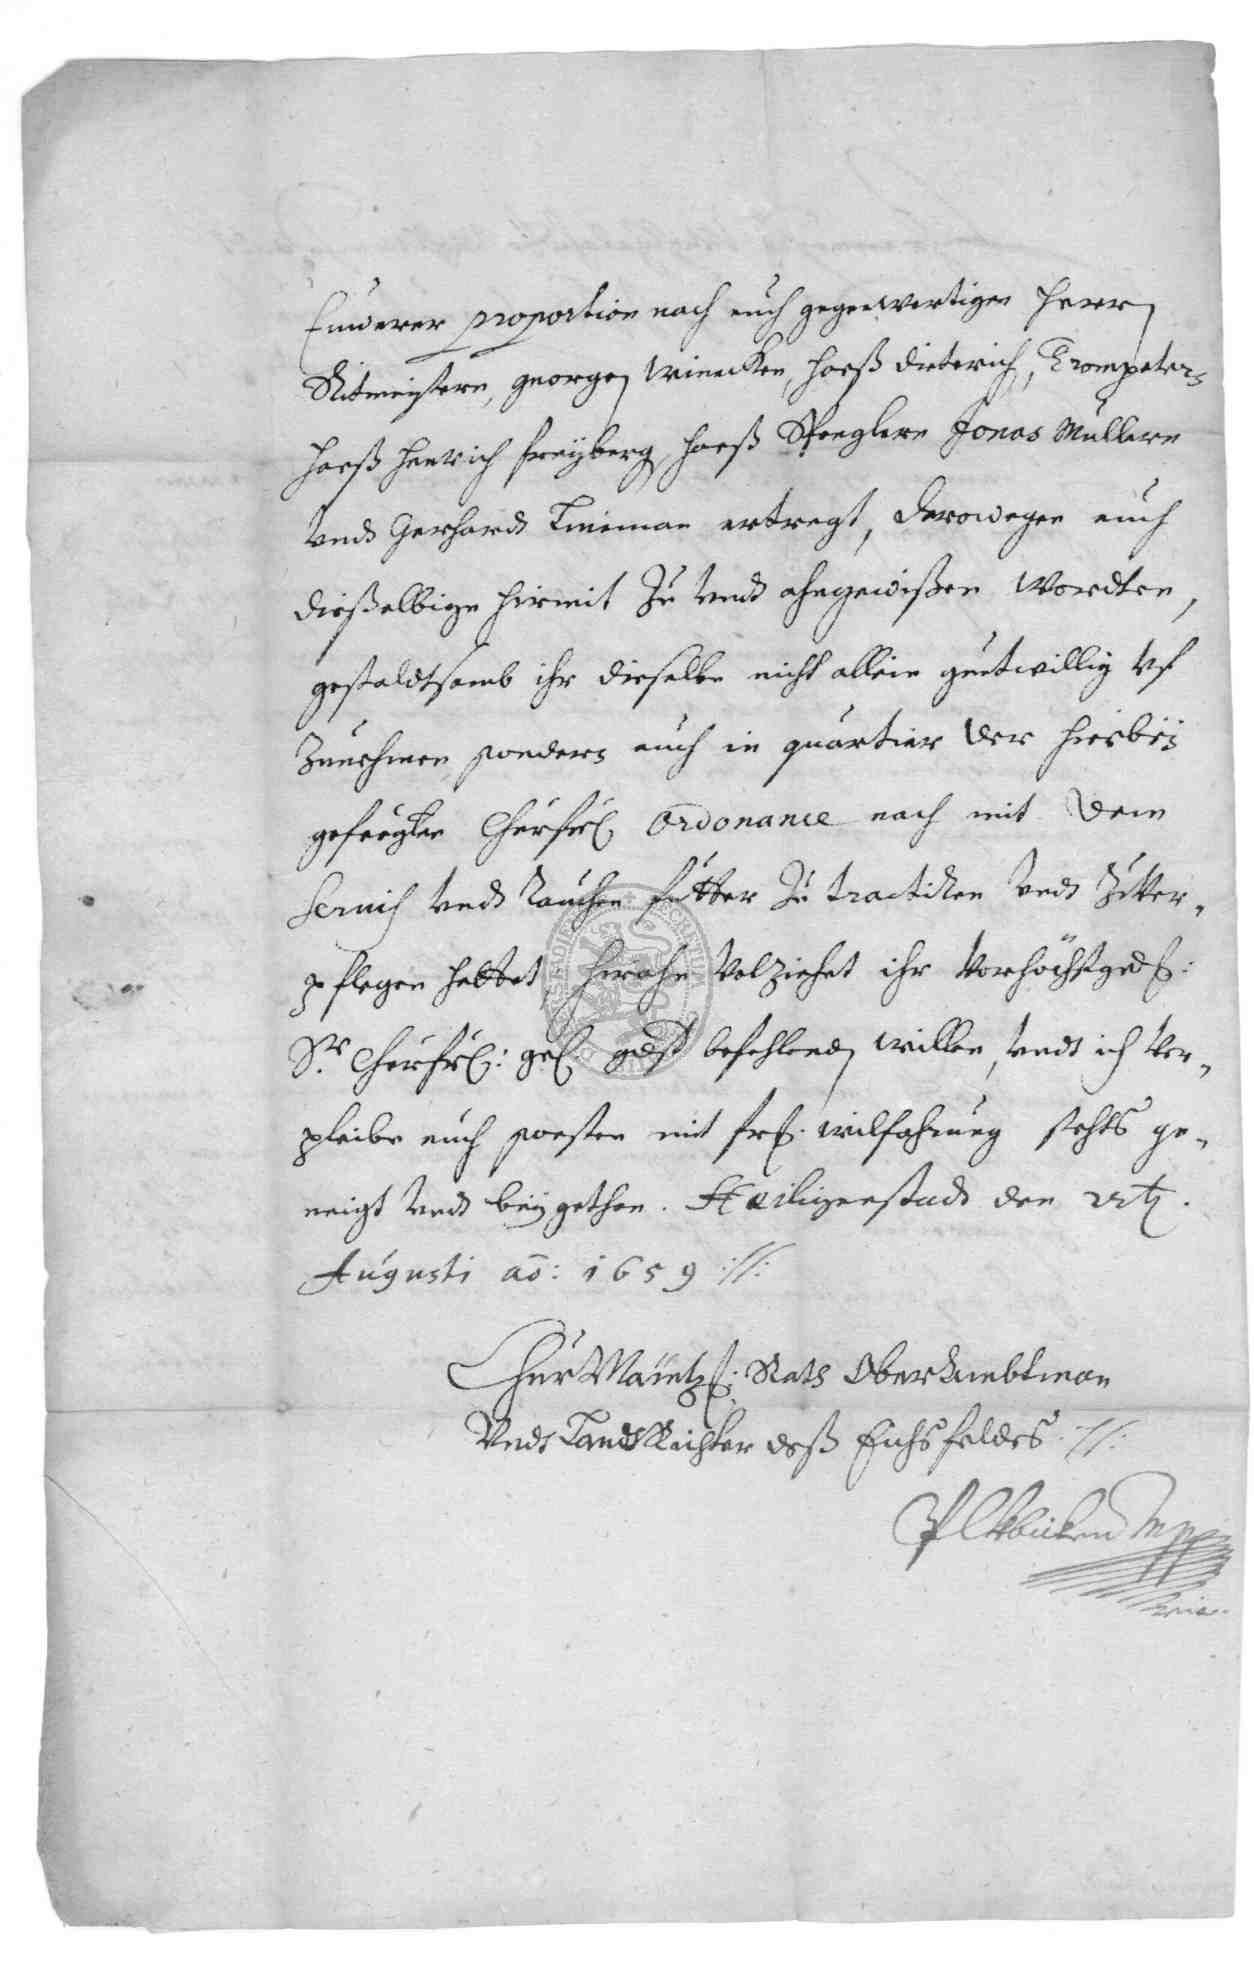 Eüwerer proportion nach euch gegenwertigen herrn
Ritmeistern, Georgen Wienecken, Hanß Dieterich, Trompetern
Hanß Henrich Freÿberg, Hanß Spenglern Jonas Müllern
vndt Gerhardt Tieman ertregt, derowegen euch
dießelbige hiemit zu vndt ahngewißen wordten,
gestaldtsamb ihr dieselbe nicht allein guetwillig vf
zunehmen sondern auch in quartier der hierbeÿ
gefüegten Churfrl. Ordonance nach mit dem
Servis vndt Rauchen fütter zu tractiren vndt zuver-
pflegen hettet, hieahn volziehet ihr vorhöchstged.:
Sr. Churfrl.: gn. gdst befehlendn willen, vndt ich ver-
pleibe euch sonsten mit frl. wilfahrung stehts ge-
neigt vndt beÿgethan. Heiligenstadt den
Augusti aō: 1659 ://:
Chur Mäintz. Rath Ober Ambtman
Vndt Landt Richter deß Eichsfeldes ://:
mpp
ria.